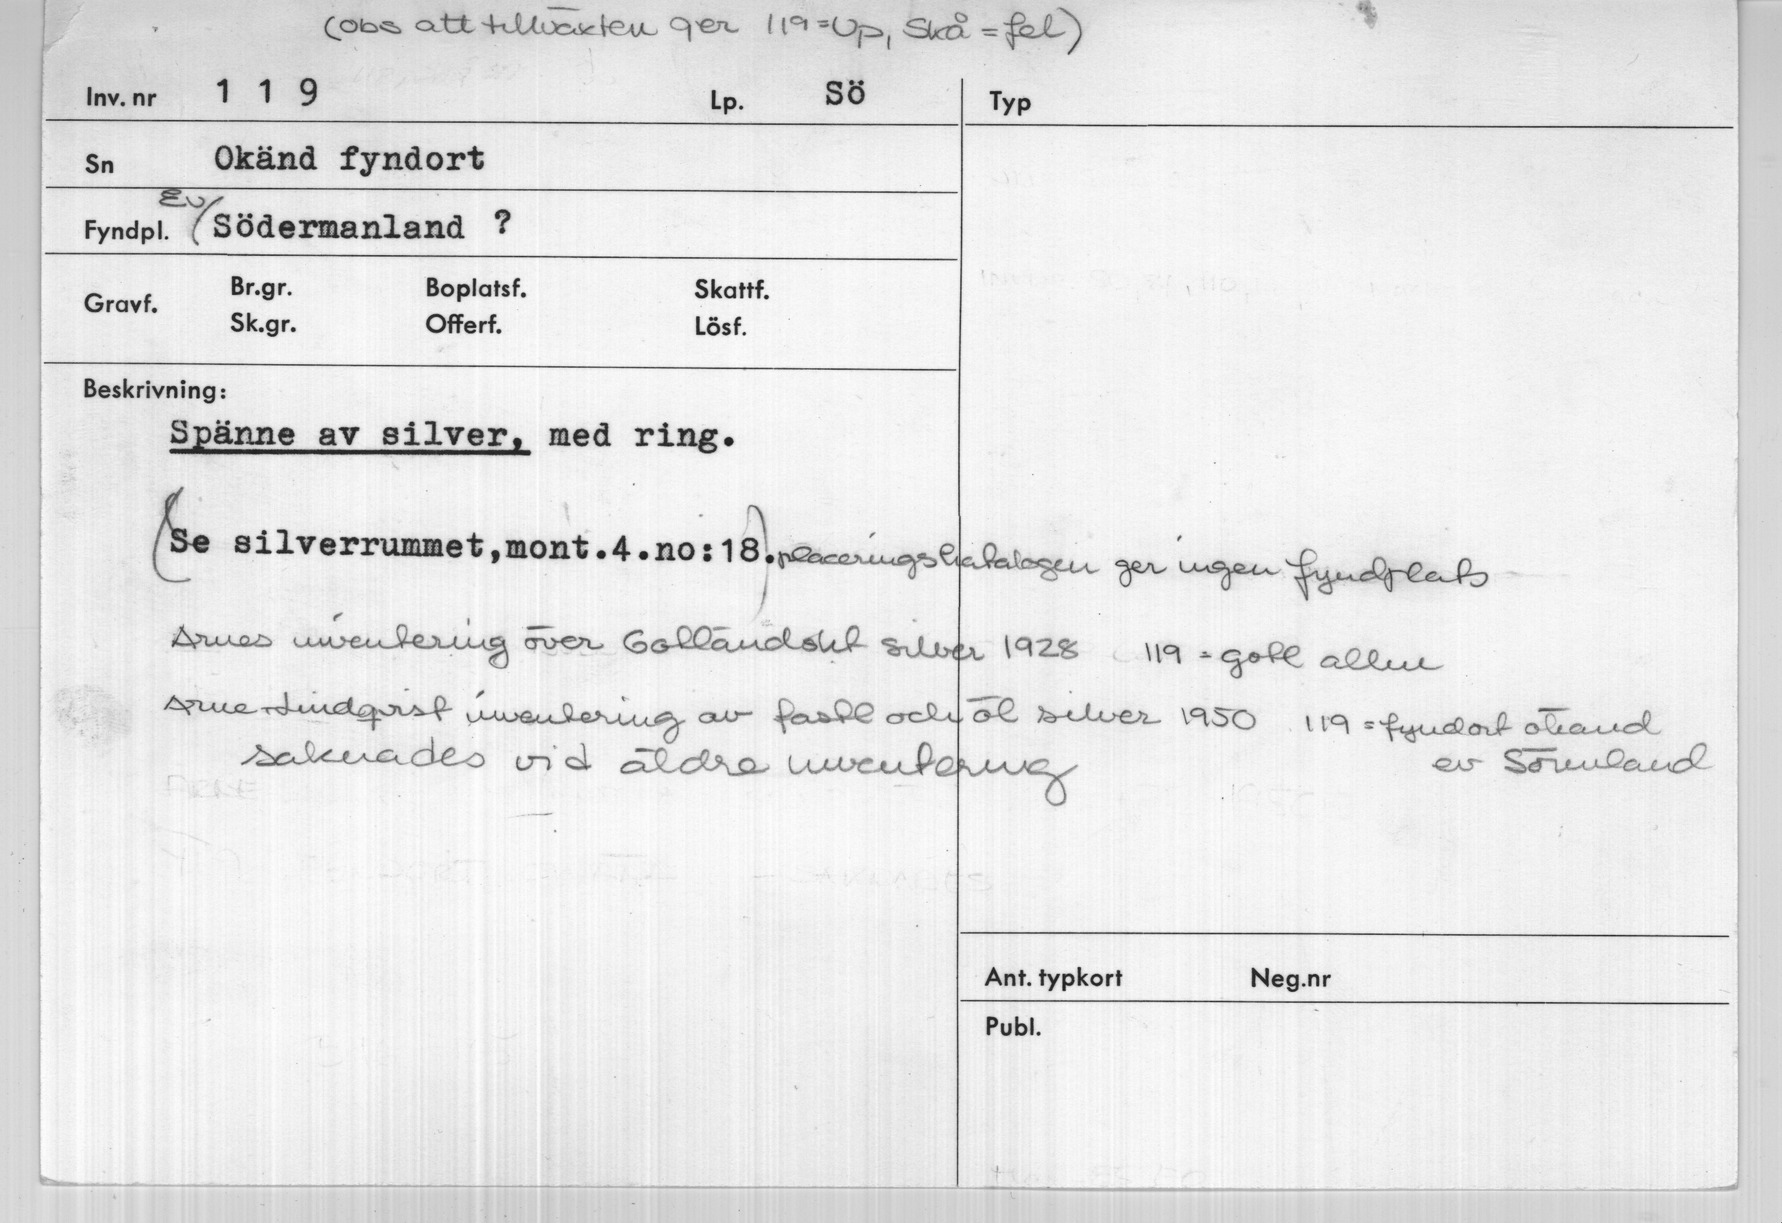 (obs att tillväxten ger 119=Up, Skå = fel)
Inv. nr 1 1 9 Lp. Sö Typ
Sn Okänd fyndort
Ev
Fyndpl. (Södermanland ?
Gravf. Br.gr. Boplatsf. Skattf.
Sk.gr. Offerf. Lösf.
Beskrivning:
Spänne av silver, med ring.
(Se silverrummet,mont.4.no:18.) placeringskatalogen ger ingen fyndplats
Arnes inventering över Gotländskt silver 1928 119 = gotl allm
Arne-Lindqvist inventering av fastl och öl silver 1950 119 = fyndort okand
saknades vid äldre inventering ev Sörmland
Ant. typkort Neg.nr
Publ.